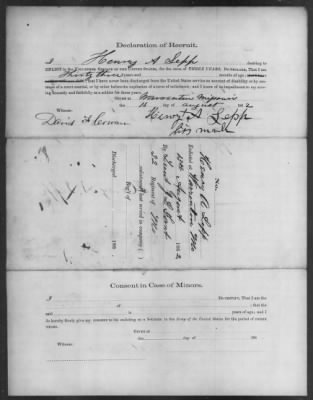 Declaration of Recruit.
I Henry A Lepp desiring to
ENLIST in the VOLUNTEER SERVICE OF THE UNITED STATES, for the term of THREE YEARS, Do DECLARE, That I am
Thirty three years and months of age;
that I have never been discharged from the United States service on account of disability or by sentence
of a court martial, or by order before the expiration of a term of enlistment; and I know of no impediment to my serving
honestly and faithfully as a soldier for three years.
GIVEN at Warrenton Missouri
the 15 day of August 1862
Witness:
David
Henry A Lepp
his mark
No.
Henry A Lepp
Enlisted at Warrenton Mo
15th August 1862
By Lieut
Regiment of Mo
enlistment; last served in company ( )
Reg't of
Discharged 186
Consent in Case of Minors.
I DO CERTIFY, That I am the
of ; that the
said is years of age; and I
do hereby freely give my consent to his enlisting as a SOLDIER in the Army of the United States for the period of THREE
YEARS.
GIVEN at
the day of 186
Witness: